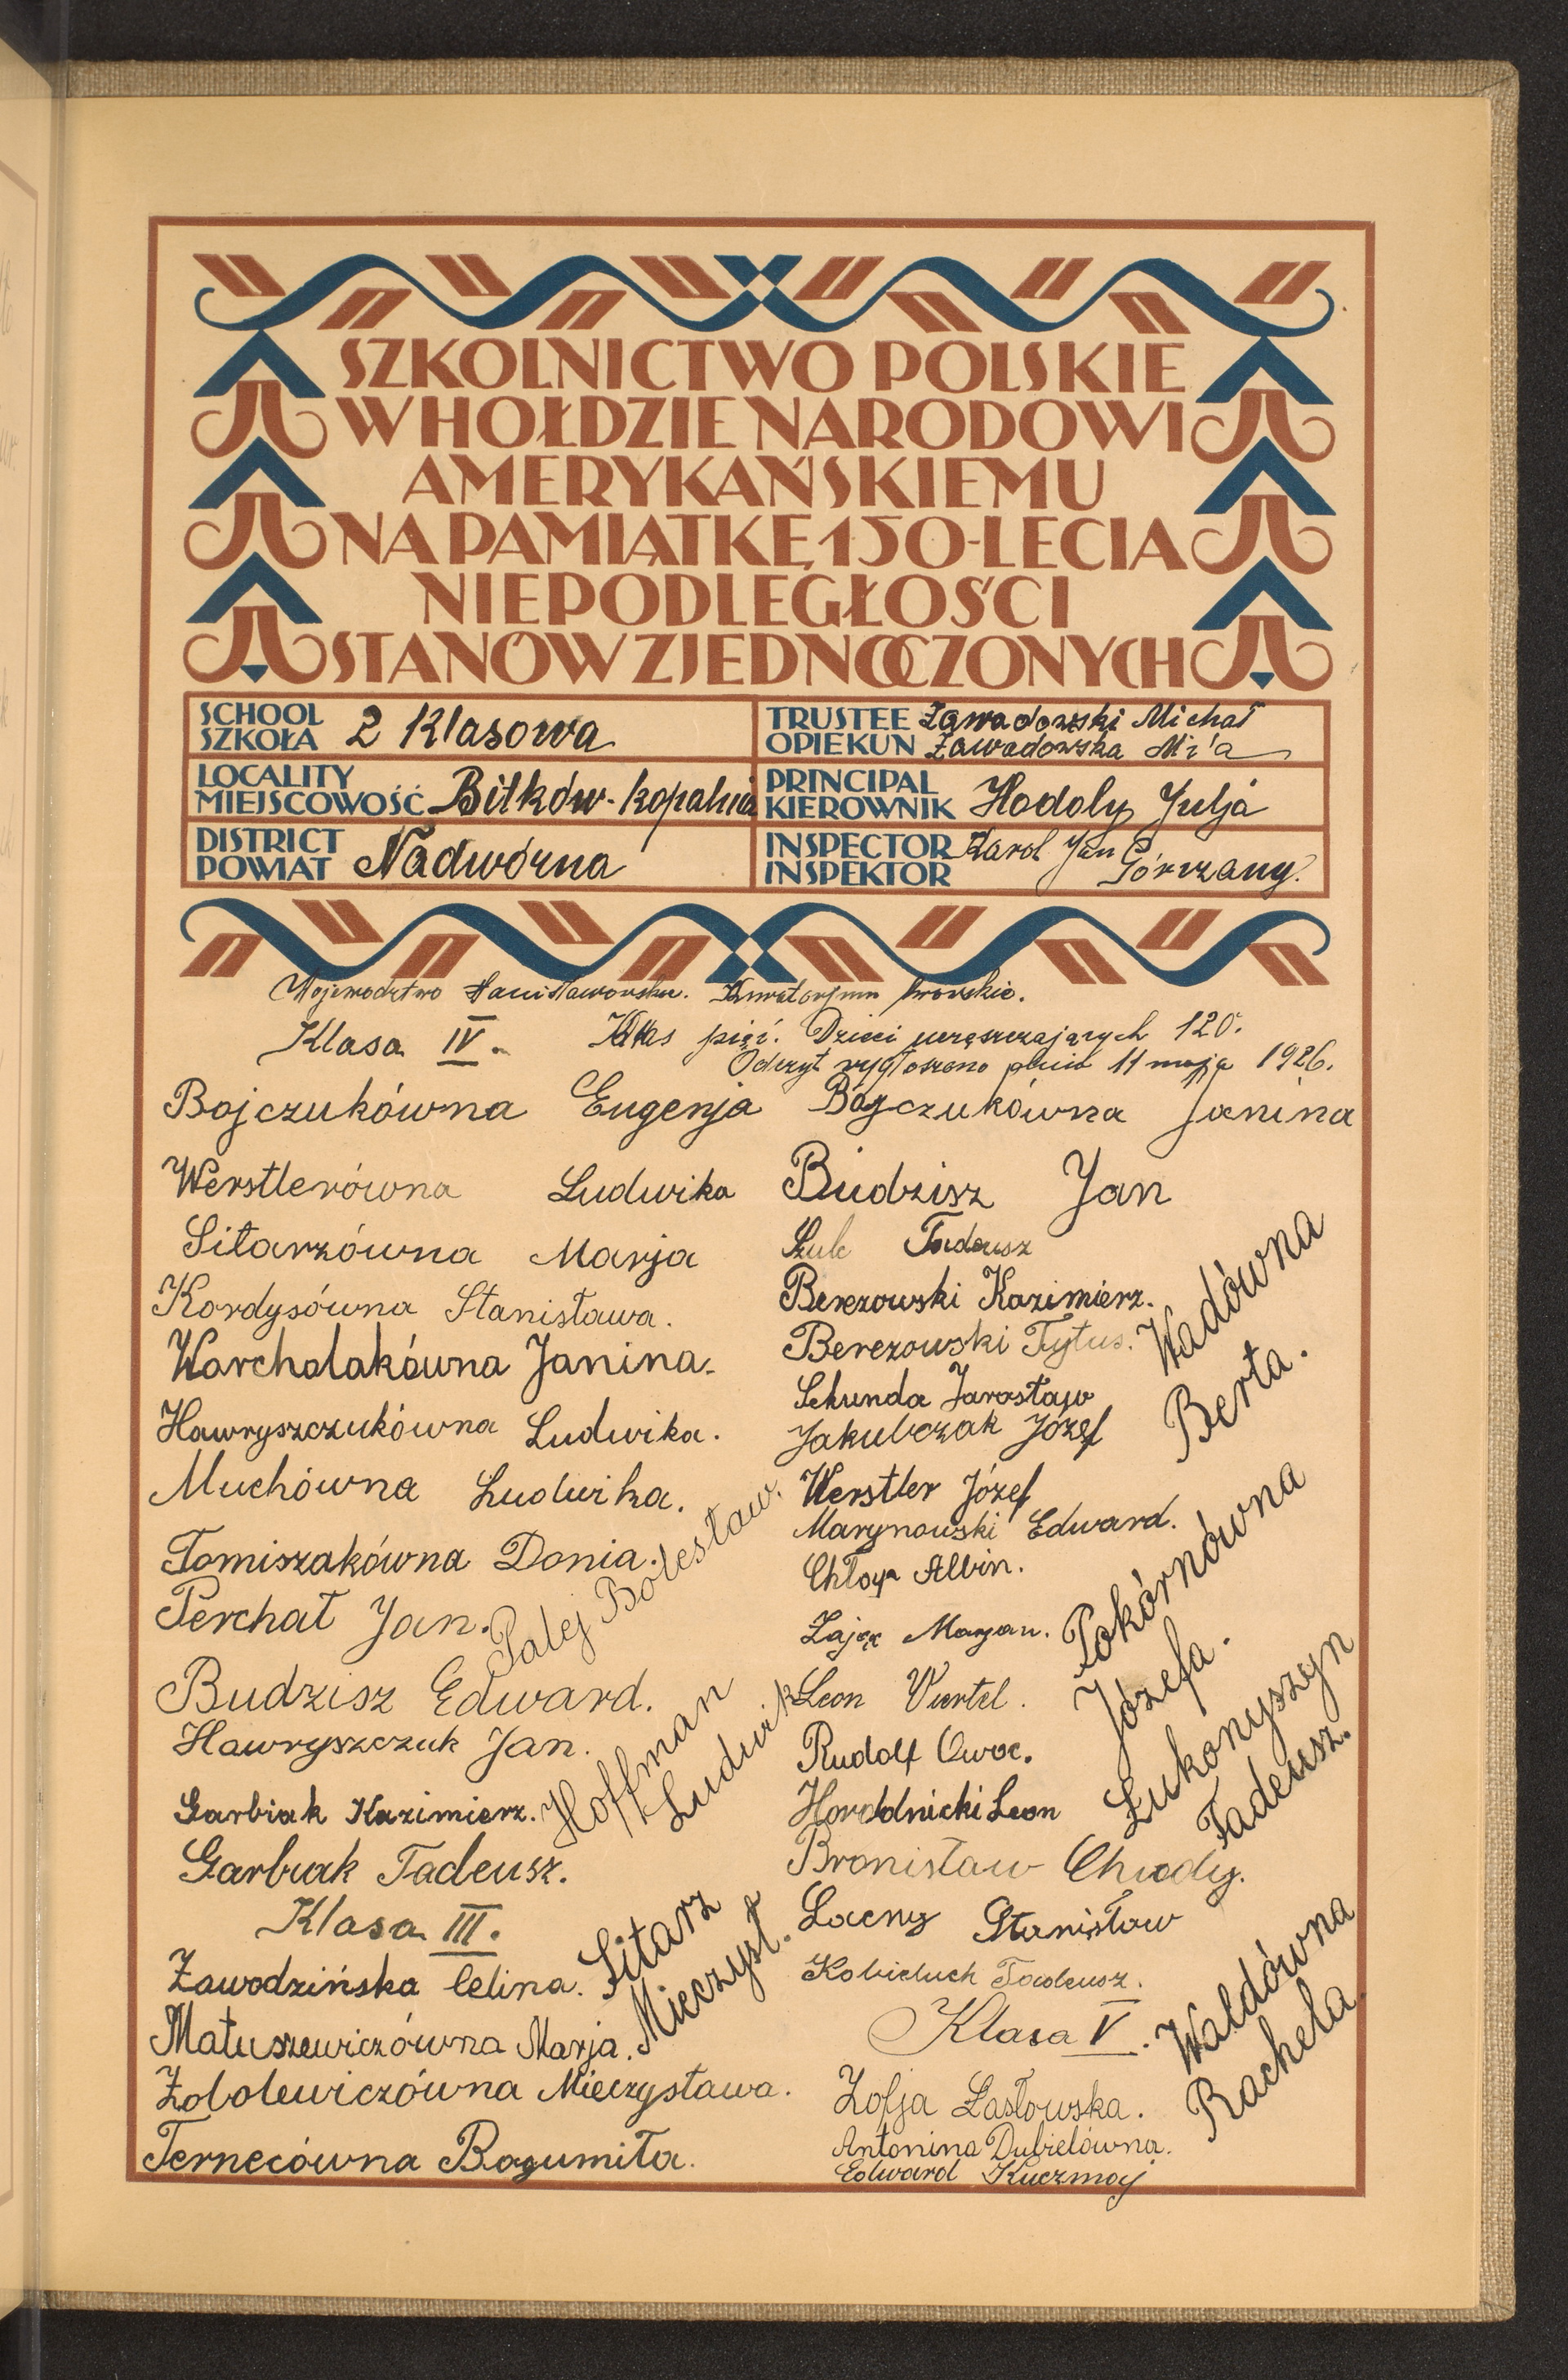 SZKOLNICTWO POLSKIE
W HOŁDZIE NARODOWI
AMERYKAŃSKIEMU
NA PAMIĄTKĘ 150-LECIA
NIEPODLEGŁOŚCI
STANÓW ZJEDNOCZONYCH
SCHOOL
SZKOŁA 2 Klasowa
TRUSTEE Zawadowski Michał
OPIEKUN Zawadowska
LOCALITY
MIEJSCOWOŚĆ Bitków-kopalnia
PRINCIPAL
KIEROWNIK Hodoly Julja
DISTRICT
POWIAT Nadwórna
INSPECTOR Karol Jan
INSPEKTOR
Województwo Stanisławowskie. Kuratorjum lwowskie.
Klasa IV. Klas pięć. Dzieci uczęszczających 120.
Odczyt wygłoszono dnia 11 maja 1926.
Bojczukówna Eugenja
Werstlerówna Ludwika
Sitarzówna Marja
Kordysówna Stanisława.
Warchalakówna Janina.
Hawryszczukówna Ludwika.
Muchówna Ludwika.
Tomiszakówna Donia.
Perchał Jan.
Palej Bolesław.
Budzisz Edward.
Hawryszczuk Jan.
Garbiak Kazimierz.
Hoffman
Ludwik
Garbiak Tadeusz.
Klasa III.
Zawodzińska Celina.
Sitarz
Mieczysł.
Matuszewiczówna Marja.
Zobolewiczówna Mieczysława.
Ternecówna Bogumiła.
Bojczukówna Janina
Budzisz Jan
Szulc Tadeusz
Berezowski Kazimierz.
Berezowski Tytus.
Sekunda Jarosław
Jakubczak Józef
Werstler Józef
Marynowski Edward.
Albin.
Zając Maryan.
Leon Viertel.
Rudolf Owoc.
Horodnicki Leon
Bronisław Chudy.
Łacny Stanisław
Kobieluch Tadeusz.
Klasa V.
Zofja Łasłowska.
Antonina Dubielówna.
Edward Kuczmaj
Wadówna
Berta.
Pokórnówna
Józefa.
Łukonyszyn
Tadeusz.
Waldówna
Rachela.